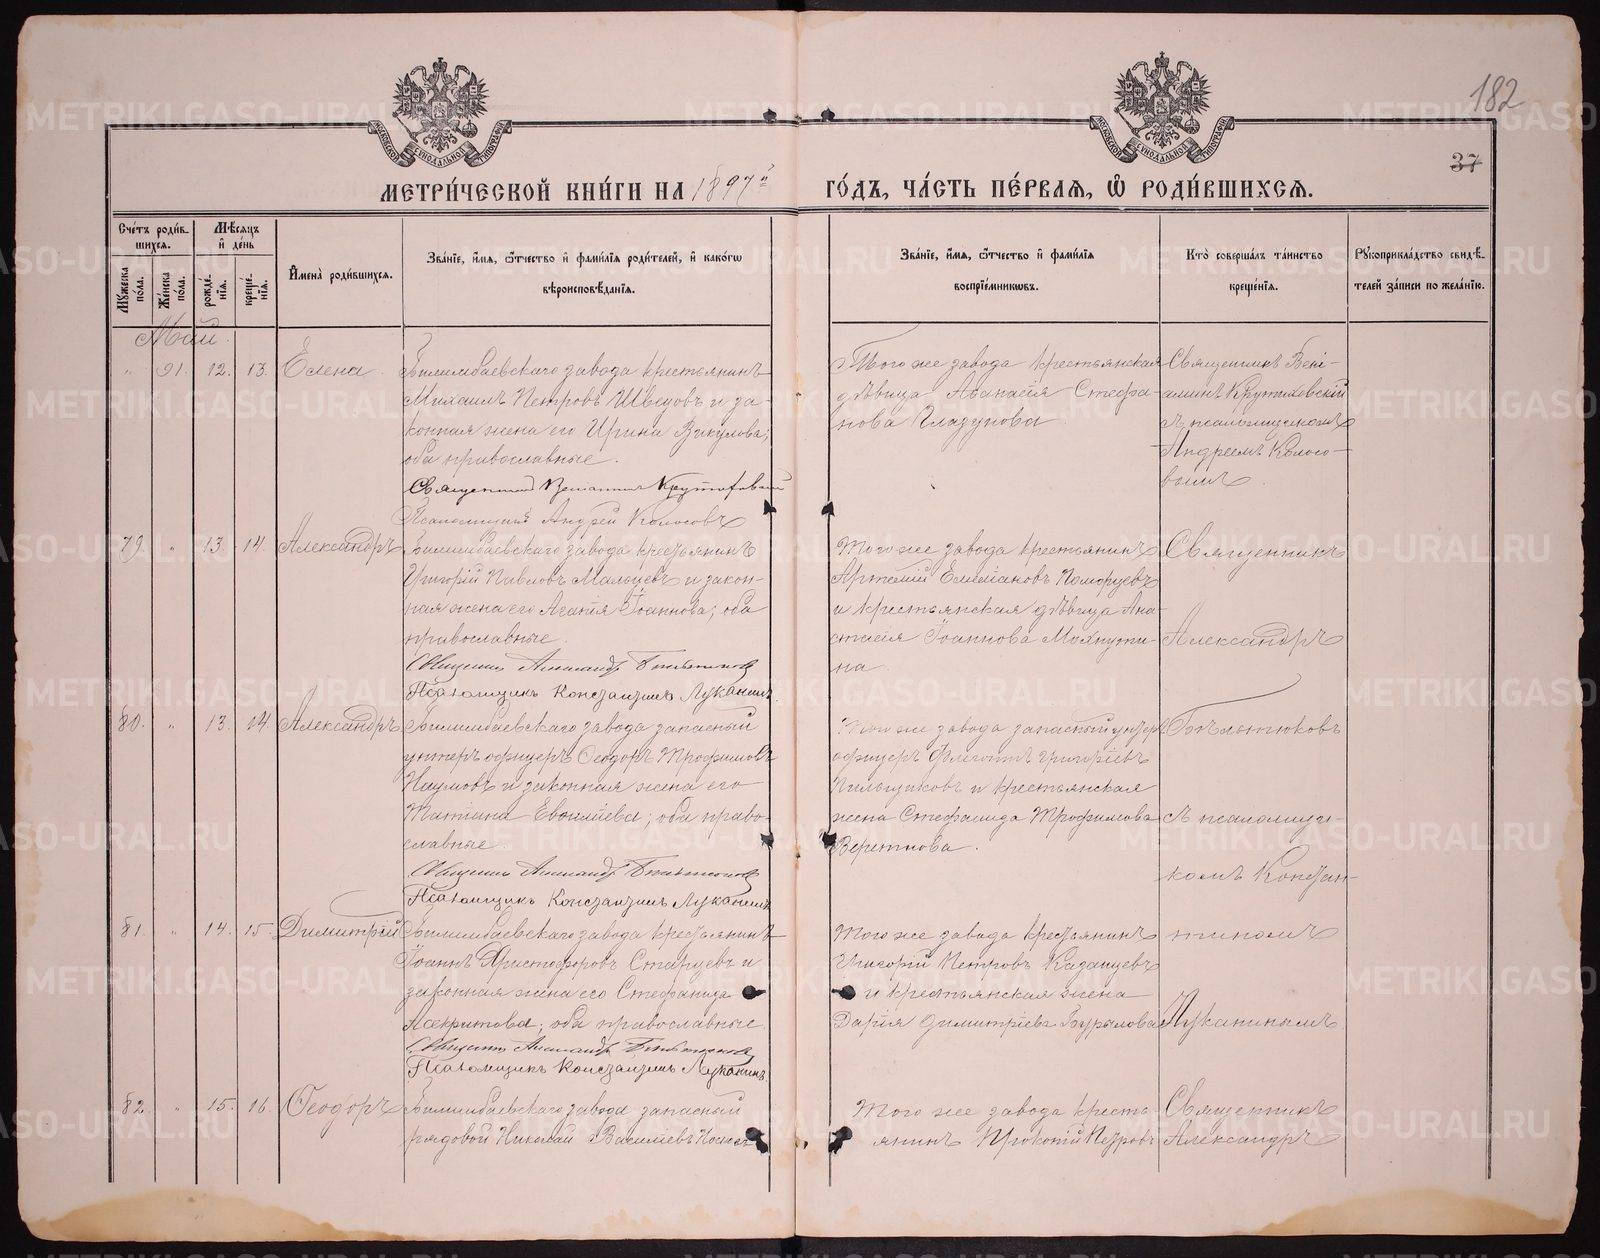 182
37
МОСКОВСКОЙ СѴНОДАЛЬНОЙ ТИПОГРАФІИ
МОСКОВСКОЙ СѴНОДАЛЬНОЙ ТИПОГРАФІИ
МЕТРИ́ЧЕСКОЙ КНИ́ГИ НА 1897й
ГО́ДЪ, ЧА́СТЬ ПЕ́РВАѦ, Ѡ҆ РОДИ́ВШИХСѦ.
Сче́тъ роди́в-
шихсѧ.
Мꙋ́жеска по́ла.
Же́нска по́ла.
Мѣ́сѧцъ
и҆ де́нь
рожде́-
нїѧ.
креще́-
нїѧ.
И҆мена̀ роди́вшихсѧ.
Зва́нїе, и҆́мѧ, ѻ҆́тчество и҆ фамѝлїѧ роди́телей, и҆ како́гѡ
вѣроисповѣ́данїѧ.
Зва́нїе, и҆́мѧ, ѻ҆́тчество и҆ фамѝлїѧ
воспрїе́мниковъ.
Кто̀ соверша́лъ та́инство
креще́нїѧ.
Рꙋкоприкла́дство свидѣ́-
телей за́писи по жела́нїю.
Май.
" 91. 12. 13. Елена.
Билимбаевскаго завода крестьянинъ
Михаилъ Петровъ Швецовъ и за-
конная жена его Ирина Викулова;
оба православные.
Священникъ Веніаминъ Крутиховскій
Псаломщикъ Андрей Колосовъ
Того же завода крестьянская
дѣвица Афанасія Стефа-
нова Глазунова.
Священникъ Вені-
аминъ Крутиховскій
съ псаломщикомъ
Андреемъ Колосо-
вымъ.
79. " 13. 14. Александръ
Билимбаевскаго завода крестьянинъ
Григорій Павловъ Мальцевъ и закон-
ная жена его Агапія Іоаннова; оба
православные.
Священникъ Александръ Бѣльтюковъ
Псаломщикъ Константинъ Луканинъ
Того же завода крестьянинъ
Артемій Емеліановъ Поморцевъ
и крестьянская дѣвица Ана-
стасія Іоаннова
на.
Священникъ
Александръ
80. " 13. 14. Александръ
Билимбаевскаго завода запасный
унтеръ офицеръ Ѳеодоръ Трофимовъ
Наумовъ и законная жена его
Татіана; оба право-
славные.
Священникъ Александръ Бѣльтюковъ
Псаломщикъ Константинъ Луканинъ
Того же завода запасный унтеръ
офицеръ Григоріевъ
Пильщиковъ и крестьянская
жена Стефанида Трофимова
Бѣльтюковъ
съ псаломщи-
комъ Констан-
81. " 14. 15. Димитрій
Билимбаевскаго завода крестьянинъ
Іоаннъ Христофоровъ Старцевъ и
законная жена его Стефанида
Асекритова; оба православные.
Священникъ Александръ Бѣльтюковъ
Псаломщикъ Константинъ Луканинъ.
Того же завода крестьянинъ
Григорій Петровъ Казанцевъ
и крестьянская жена
Дарія Димитріева Бурылова
тиномъ
Луканинымъ
82. " 15. 16. Ѳеодоръ
Билимбаевскаго завода запасный
рядовой Николай Васильевъ
Того же завода кресть-
янинъ Прокопій Петровъ
Священникъ
Александръ
METRIKI.GASO-URAL.RU